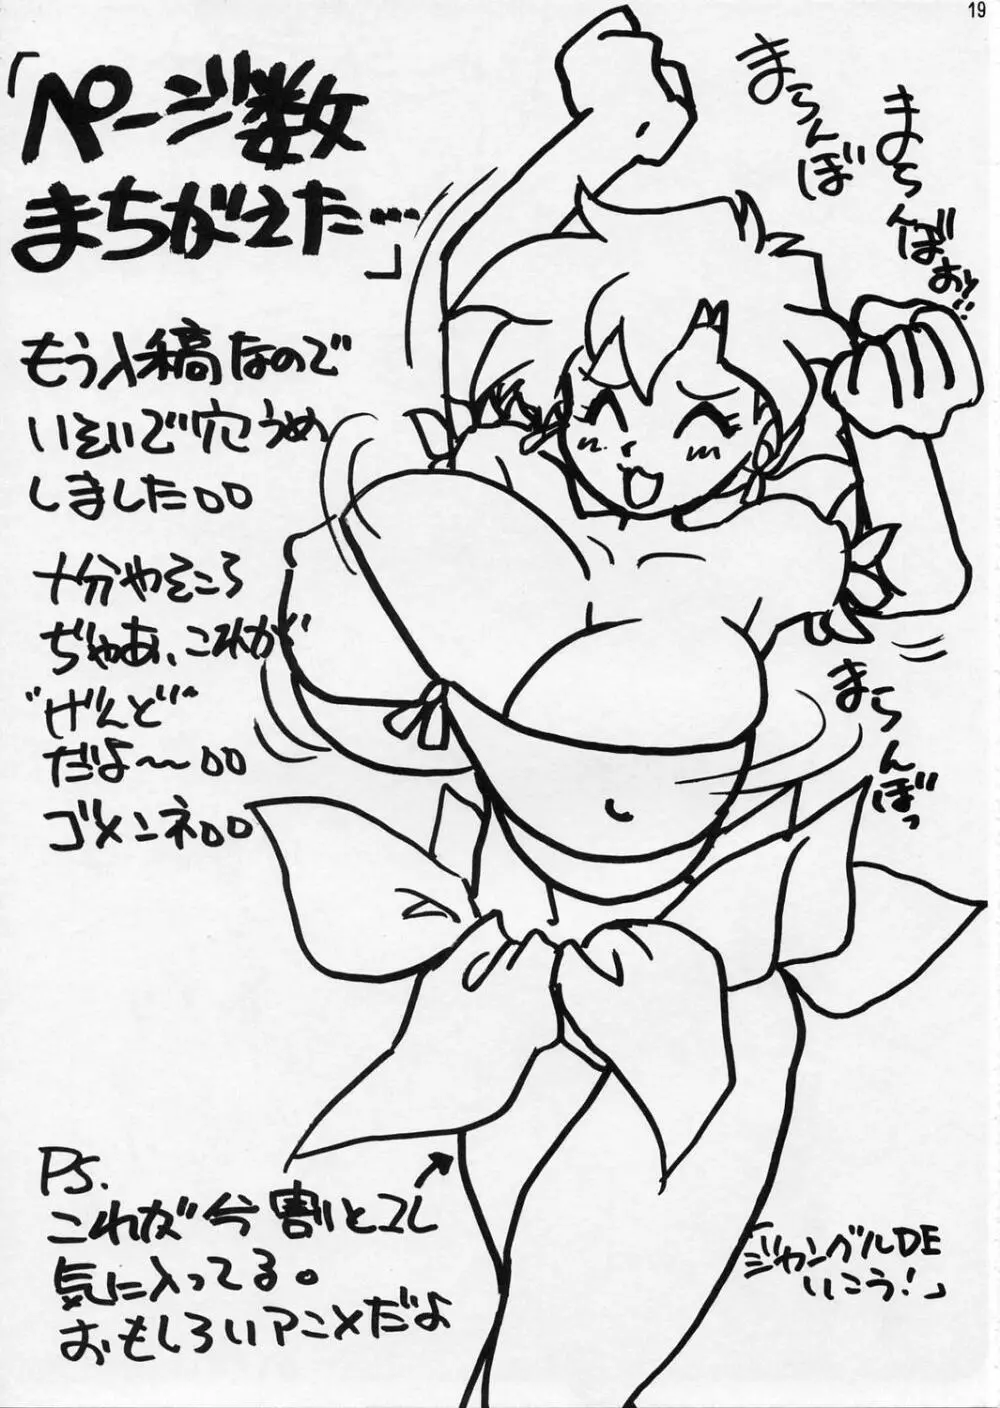 19
「ページ数
まちがえた…」
もう入稿なので
いそいで穴うめ
しました○○
十分やそころ
ぢゃあ、これが
"げんど"
だよ〜○○
ゴメンネ○○
まらんぼ
まらんばおッ!!
まらんぼっ
P.S.
これが今割とユレ
気に入ってる。
おもしろいアニメだよ
「ジャングルDE
いこう!」